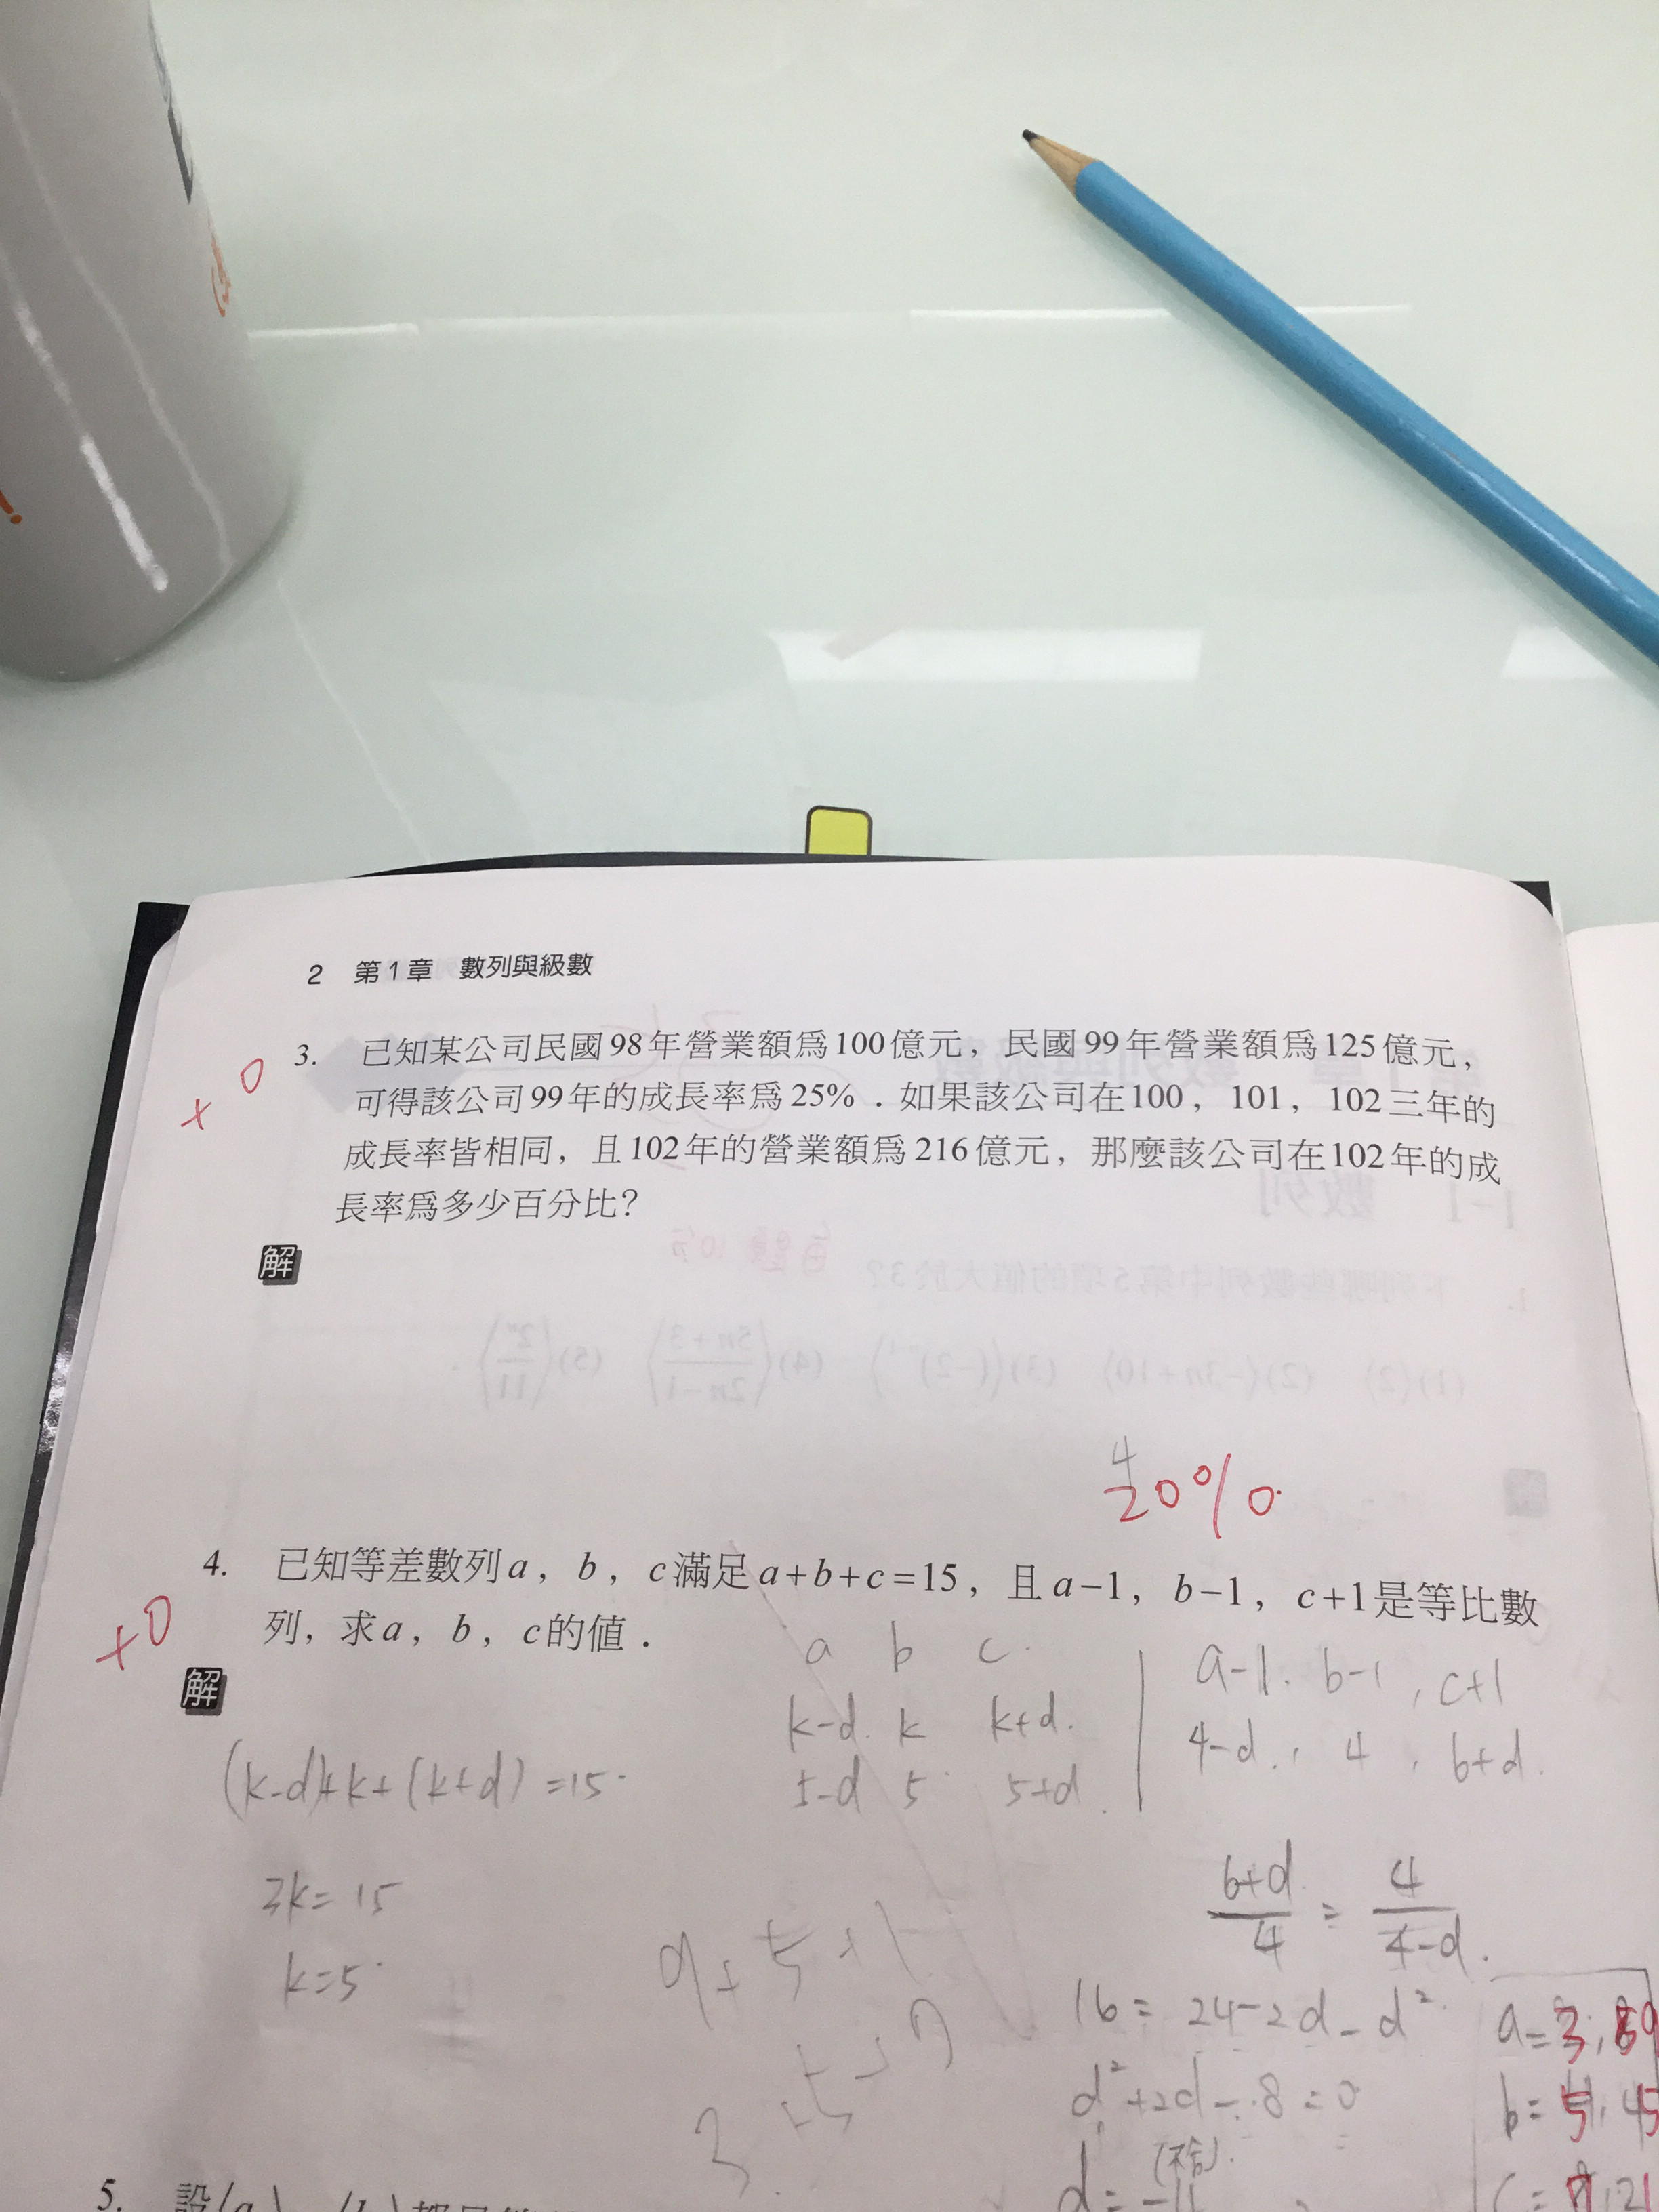 2 第1章 數列與級數
3. 已知某公司民國98年營業額為100億元，民國99年營業額為125億元，
可得該公司99年的成長率為25%．如果該公司在100，101，102三年的
成長率皆相同，且102年的營業額為216億元，那麼該公司在102年的成
長率為多少百分比？
+0
解
4
20%
4. 已知等差數列a，b，c滿足a+b+c=15，且a−1，b−1，c+1是等比數
列，求a，b，c的值．
+0
解
a b c
k-d k k+d
5-d 5 5+d
a-1. b-1, c+1
4-d, 4, 6+d
(k-d)+k+(k+d)=15
3k=15
k=5
6+d/4 = 4/4-d
16=24-2d-d²
d²+2d-8=0
(不合)
a=3,
b=5,
5. 設